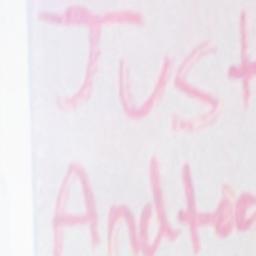 Just
And too